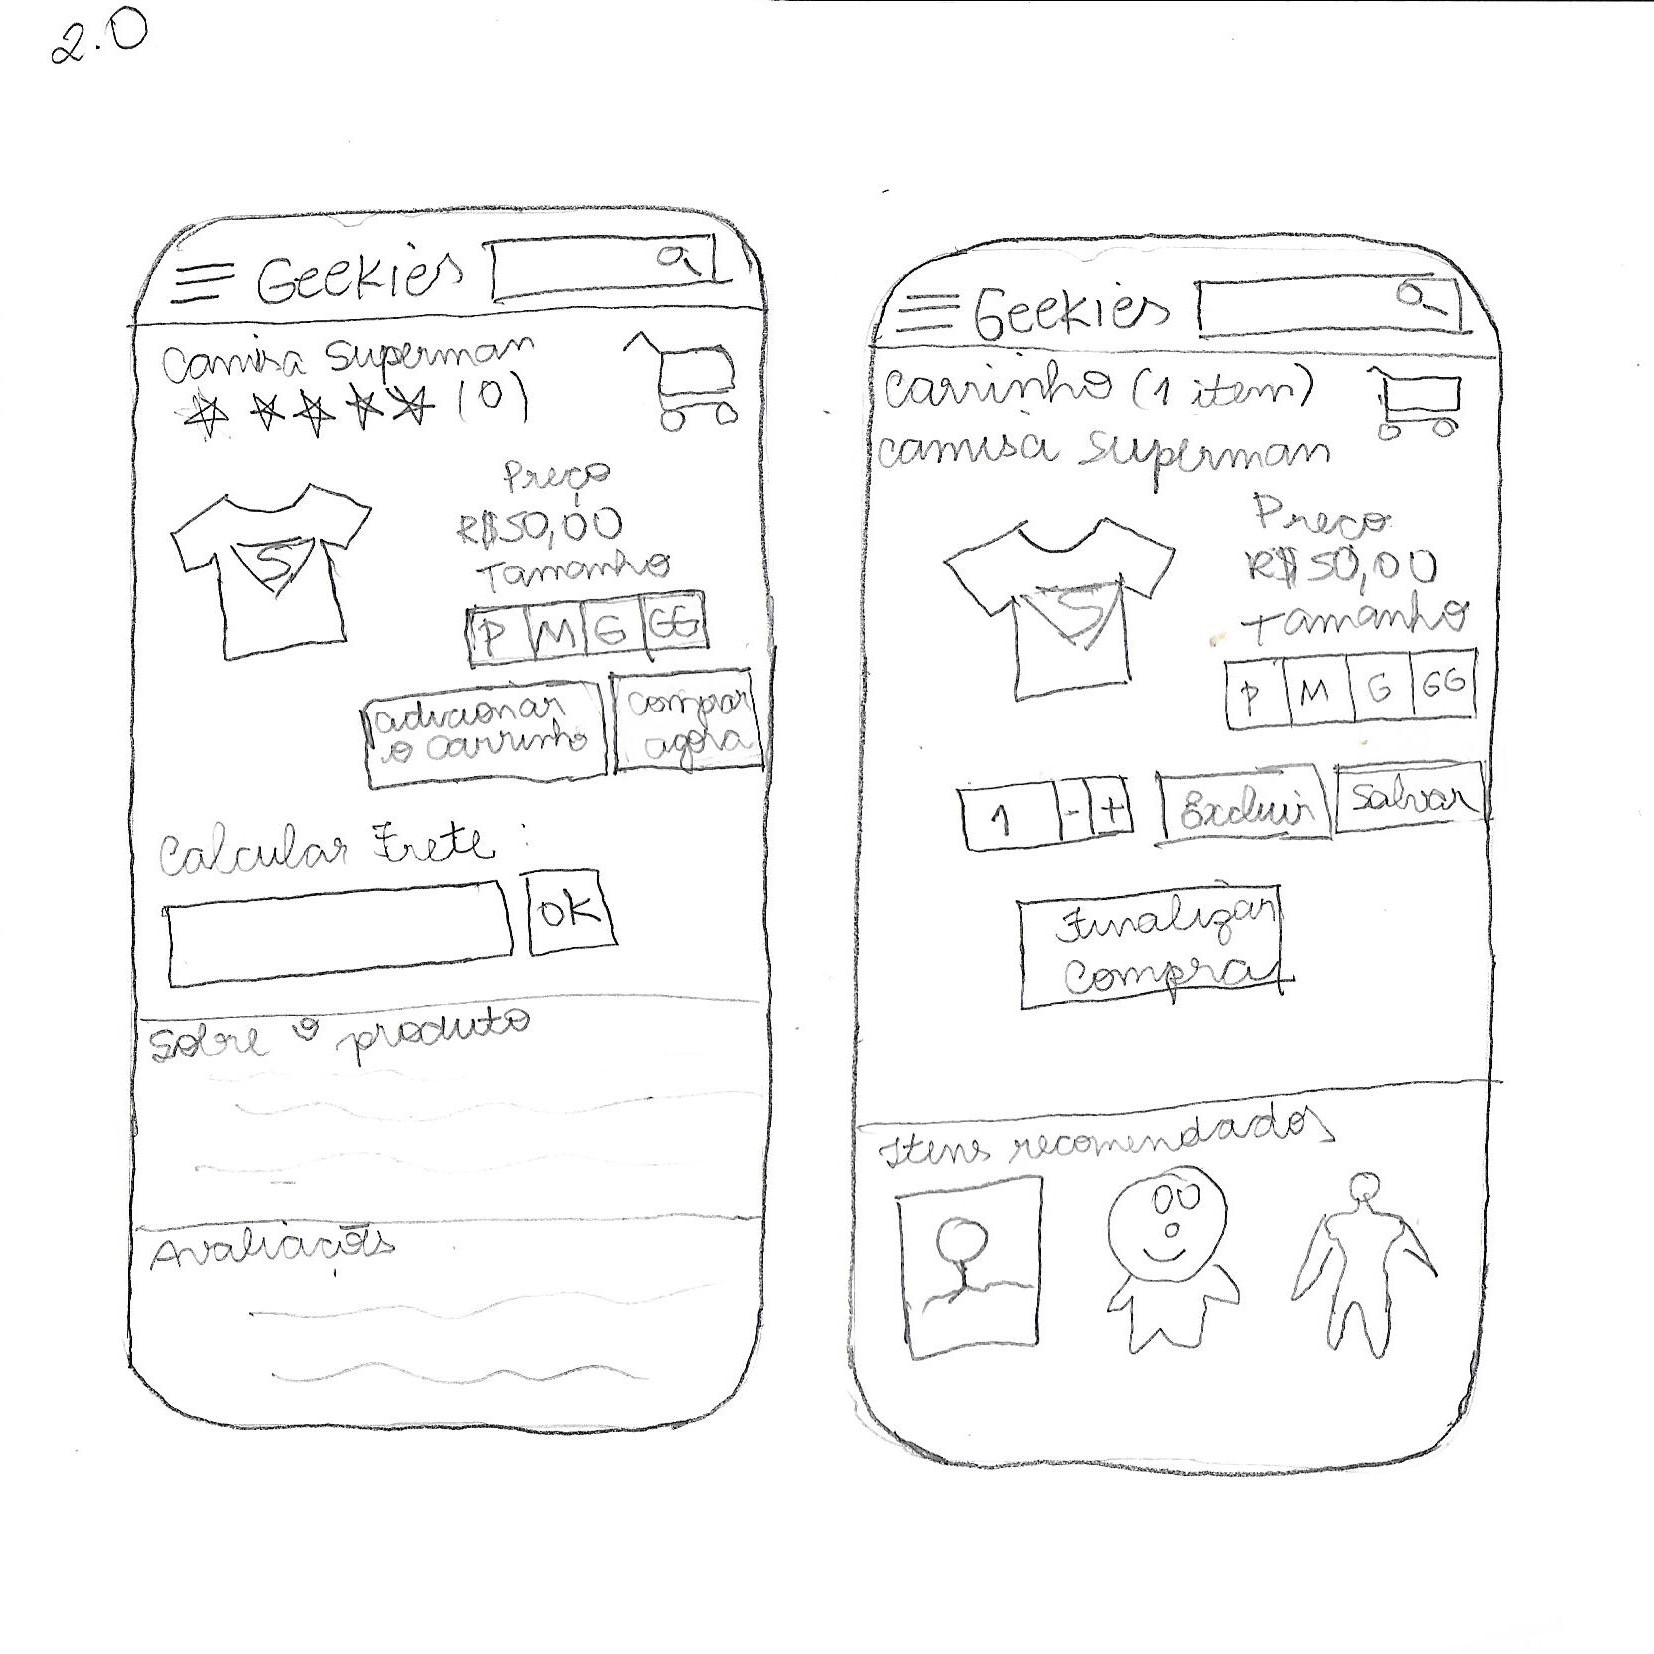 2.0
Geekies
Camisa Superman
(0)
Preço
R$50,00
Tamanho
P M G GG
adicionar
o carrinho
comprar
agora
Calcular Frete :
OK
Sobre o produto
Avaliações
Geekies
Carrinho (1 item)
camisa Superman
Preço
R$50,00
Tamanho
P M G GG
1 - +
Excluir
Salvar
Finalizar
Compra
Itens recomendados